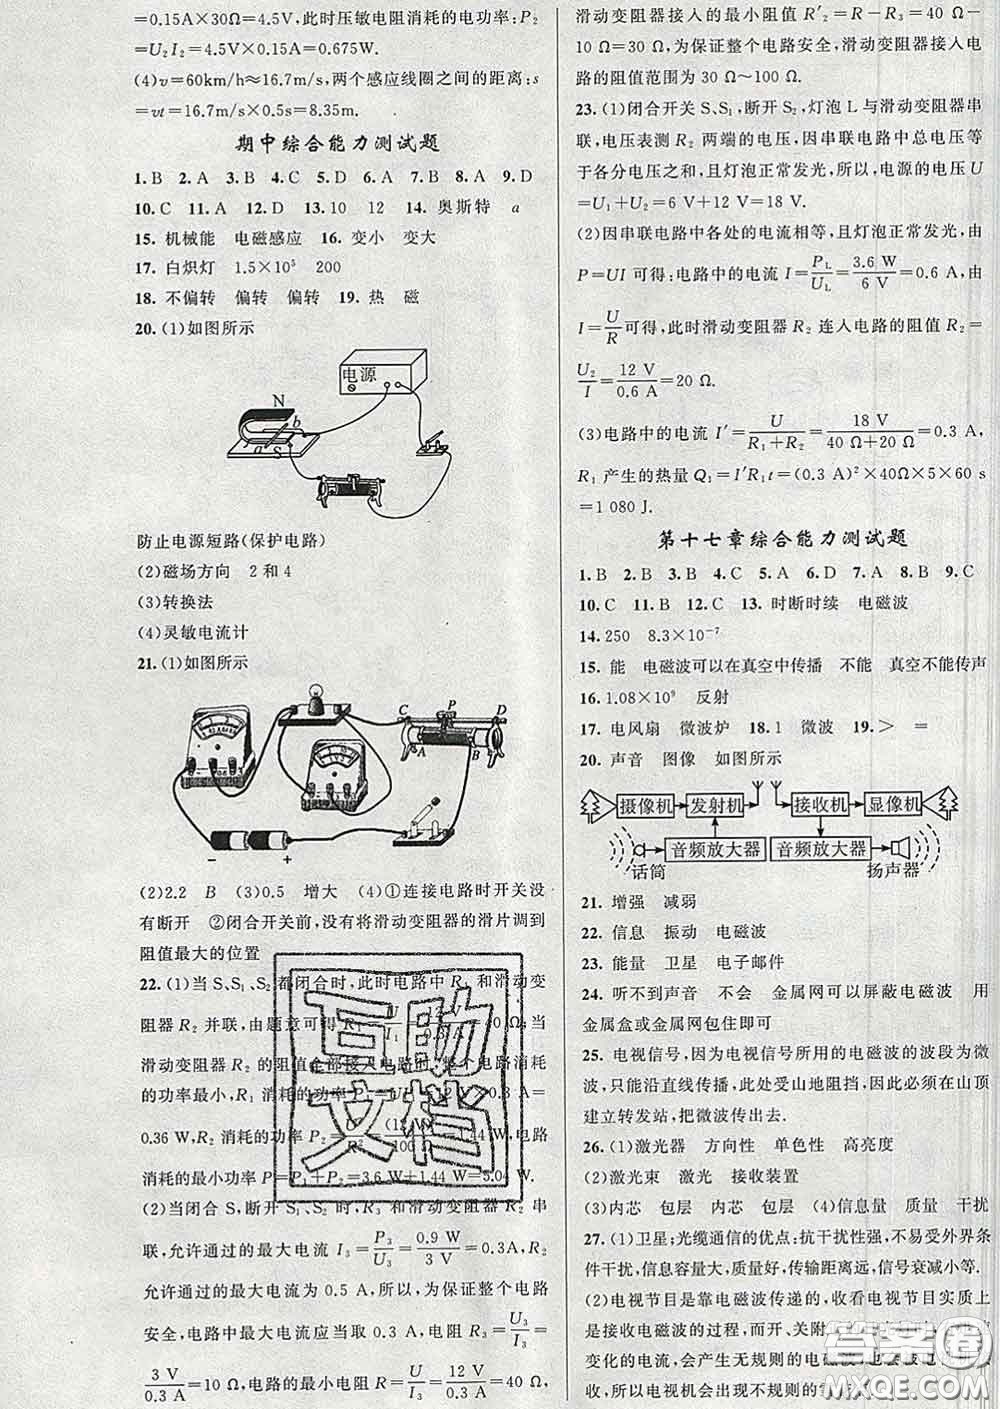 =0.15A×30Ω=4.5V,此时压敏电阻消耗的电功率:P₂
=U₂I₂=4.5V×0.15A=0.675W.
(4)v=60km/h≈16.7m/s,两个感应线圈之间的距离:s
=vt=16.7m/s×0.5s=8.35m.
期中综合能力测试题
1. B 2. A 3. B 4. C 5. D 6. A 7. B 8. A 9. D
10. C 11. A 12. D 13. 10 12 14. 奥斯特 a
15. 机械能 电磁感应 16. 变小 变大
17. 白炽灯 1.5×10⁵ 200
18. 不偏转 偏转 偏转 19. 热 磁
20. (1)如图所示
电源
N
b
a
S
防止电源短路(保护电路)
(2)磁场方向 2和4
(3)转换法
(4)灵敏电流计
21. (1)如图所示
C P D
A B
− +
(2)2.2 B (3)0.5 增大 (4)①连接电路时开关没
有断开 ②闭合开关前,没有将滑动变阻器的滑片调到
阻值最大的位置
22. (1)当 S、S₁、S₂ 都闭合时,此时电路中 R₁ 和滑动变
阻器 R₂ 并联,由题意可得 R₁ = U/I₁ = 12 V/0.3 A = 40 Ω;当
滑动变阻器 R₂ 的阻值全部接入电路时,整个电路消耗
的功率最小,R₁ 消耗的功率 P₁=
0.36 W,R₂ 消耗的功率 P₂= = (12 V)²/100 Ω =1.44 W,电路
消耗的最小功率 P=P₁+P₂=3.6 W+1.44 W=5.04 W.
(2)当闭合 S,断开 S₁、S₂ 时,R₃ 和滑动变阻器 R₂ 串
联,允许通过的最大电流 I₃ = P₃/U₃ = 0.9 W/3 V = 0.3A,R₂
允许通过的最大电流为 0.5 A,所以,为保证整个电路
安全,电路中最大电流应当取 0.3 A,电阻 R₃ = U₃/I₃ =
3 V/0.3 A = 10 Ω,电路的最小电阻 R = U/I₃ = 12 V/0.3 A = 40 Ω,
滑动变阻器接入的最小阻值 R′₂=R−R₃=40 Ω−
10 Ω=30 Ω,为保证整个电路安全,滑动变阻器接入电
路的阻值范围为 30 Ω~100 Ω.
23. (1)闭合开关 S、S₁,断开 S₂,灯泡 L 与滑动变阻器串
联,电压表测 R₂ 两端的电压,因串联电路中总电压等
于各分电压之和,且灯泡正常发光,所以,电源的电压 U
=U₁+U₂=6 V+12 V=18 V.
(2)因串联电路中各处的电流相等,且灯泡正常发光,由
P=UI 可得:电路中的电流 I = P_L/U_L = 3.6 W/6 V = 0.6 A,由
I = U/R 可得,此时滑动变阻器 R₂ 连入电路的阻值 R₂ =
U₂/I = 12 V/0.6 A = 20 Ω.
(3)电路中的电流 I′ = U/(R₁+R₂) = 18 V/(40 Ω+20 Ω) = 0.3 A,
R₁ 产生的热量 Q₁=I′R₁t=(0.3 A)²×40Ω×5×60 s
=1 080 J.
第十七章综合能力测试题
1. B 2. B 3. B 4. C 5. A 6. D 7. A 8. B 9. C
10. C 11. B 12. C 13. 时断时续 电磁波
14. 250 8.3×10⁻⁷
15. 能 电磁波可以在真空中传播 不能 真空不能传声
16. 1.08×10⁹ 反射
17. 电风扇 微波炉 18. 1 微波 19. > =
20. 声音 图像 如图所示
摄像机 发射机 接收机 显像机
音频放大器 音频放大器
话筒 扬声器
21. 增强 减弱
22. 信息 振动 电磁波
23. 能量 卫星 电子邮件
24. 听不到声音 不会 金属网可以屏蔽电磁波 用
金属盒或金属网包住即可
25. 电视信号,因为电视信号所用的电磁波的波段为微
波,只能沿直线传播,此处受山地阻挡,因此必须在山顶
建立转发站,把微波传出去.
26. (1)激光器 方向性 单色性 高亮度
(2)激光束 激光 接收装置
(3)内芯 包层 内芯 包层 (4)信息量 质量 干扰
27. (1)卫星;光缆通信的优点:抗干扰性强,不易受外界条
件干扰,信息容量大,传输距离远,信号衰减小等.
(2)电视节目是靠电磁波传递的,收看电视节目实质上
是接收电磁波的过程,而开、关附
变化的电流,会产生无规则的电磁波,也会被电视机接
收,所以电视机会出现不规则的
互助文档
答案圈
MXQE.COM